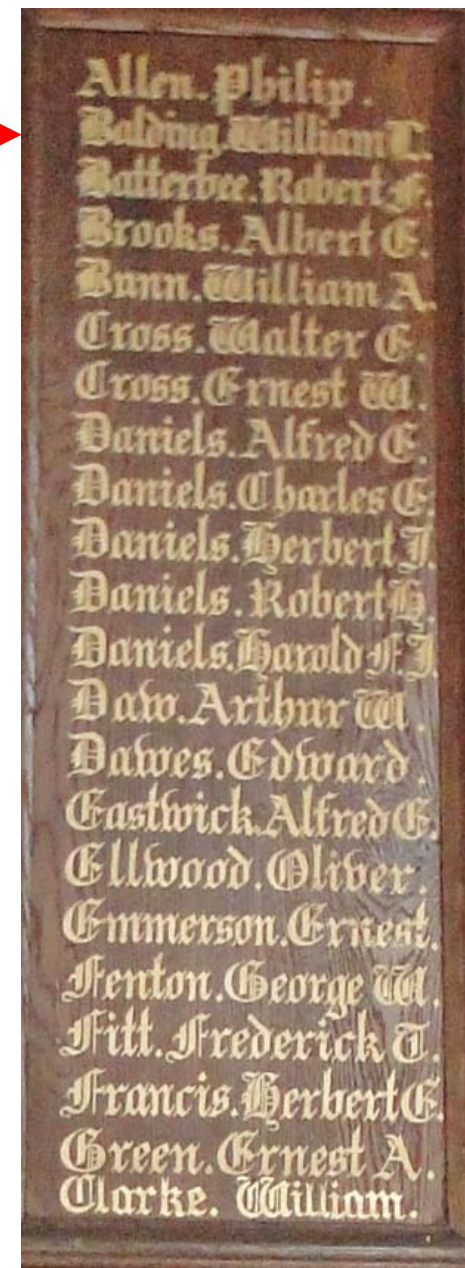 Allen. Philip.
Balding. William T.
Batterbee. Robert F.
Brooks. Albert E.
Bunn. William A.
Cross. Walter E.
Cross. Ernest W.
Daniels. Alfred E.
Daniels. Charles E.
Daniels. Herbert J.
Daniels. Robert H.
Daniels. Harold F. J.
Daw. Arthur W.
Dawes. Edward.
Eastwick. Alfred E.
Ellwood. Oliver.
Emmerson. Ernest.
Fenton. George W.
Fitt. Frederick T.
Francis. Herbert E.
Green. Ernest A.
Clarke. William.